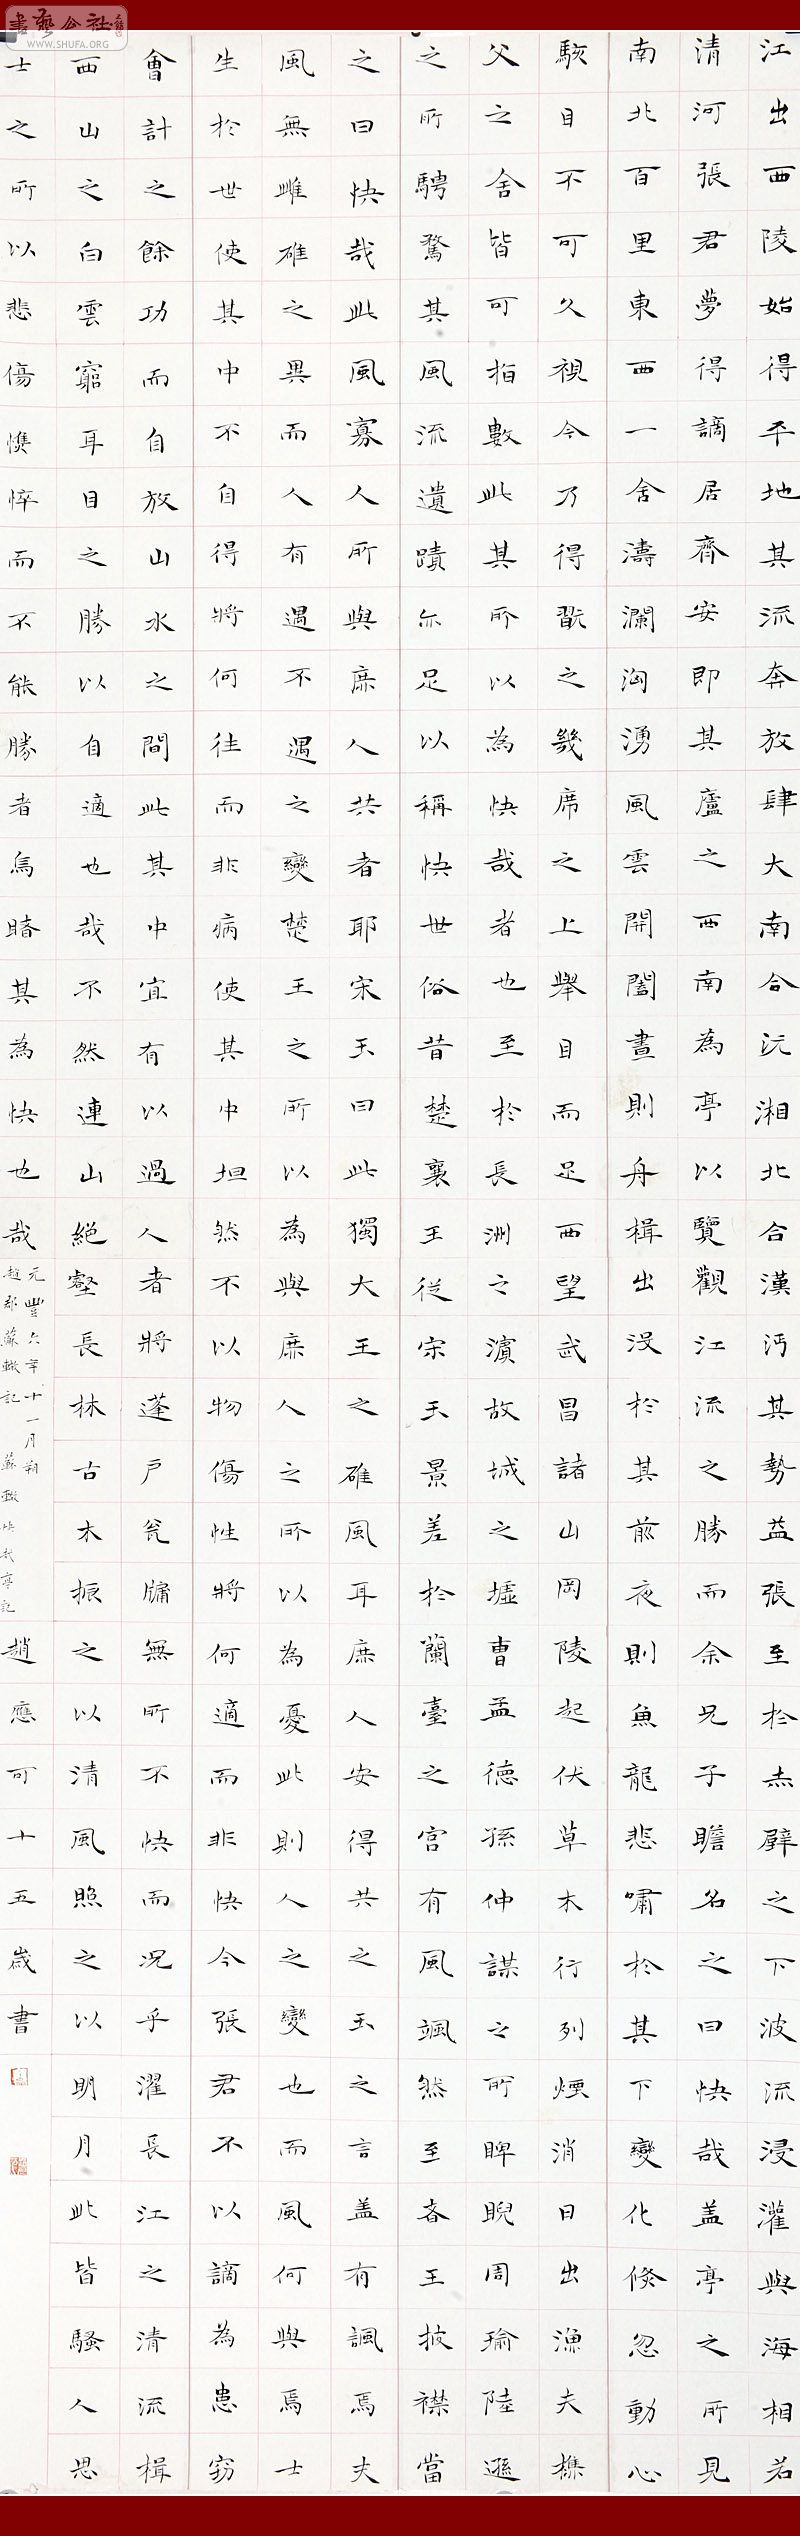 江出西陵始得平地其流奔放肆大南合沅湘北合漢沔其勢益張至於赤壁之下波流浸灌與海相若
清河張君夢得謫居齊安即其廬之西南為亭以覽觀江流之勝而余兄子瞻名之曰快哉盖亭之所見
南北百里東西一舍濤瀾洶湧風雲開闔晝則舟楫出沒於其前夜則魚龍悲嘯於其下變化倏忽動心
駭目不可久視今乃得翫之幾席之上舉目而足西望武昌諸山岡陵起伏草木行列煙消日出漁夫樵
父之舍皆可指數此其所以為快哉者也至於長洲之濱故城之墟曹孟德孫仲謀之所睥睨周瑜陸遜
之所騁騖其風流遺蹟亦足以稱快世俗昔楚襄王從宋玉景差於蘭臺之宮有風颯然至者王披襟當
之曰快哉此風寡人所與庶人共者耶宋玉曰此獨大王之雄風耳庶人安得共之玉之言盖有諷焉夫
風無雌雄之異而人有遇不遇之變楚王之所以為與庶人之所以為憂此則人之變也而風何與焉士
生於世使其中不自得將何往而非病使其中坦然不以物傷性將何適而非快今張君不以謫為患窃
會計之餘功而自放山水之間此其中宜有以過人者將蓬戶瓮牖無所不快而況乎濯長江之清流楫
西山之白雲窮耳目之勝以自適也哉不然連山絕壑長林古木振之以清風照之以明月此皆騷人思
士之所以悲傷憔悴而不能勝者烏睹其為快也哉
元豐六年十一月朔
趙郡蘇轍記 蘇轍快哉亭記
趙應可十五歲書
書藝公社
WWW.SHUFA.ORG